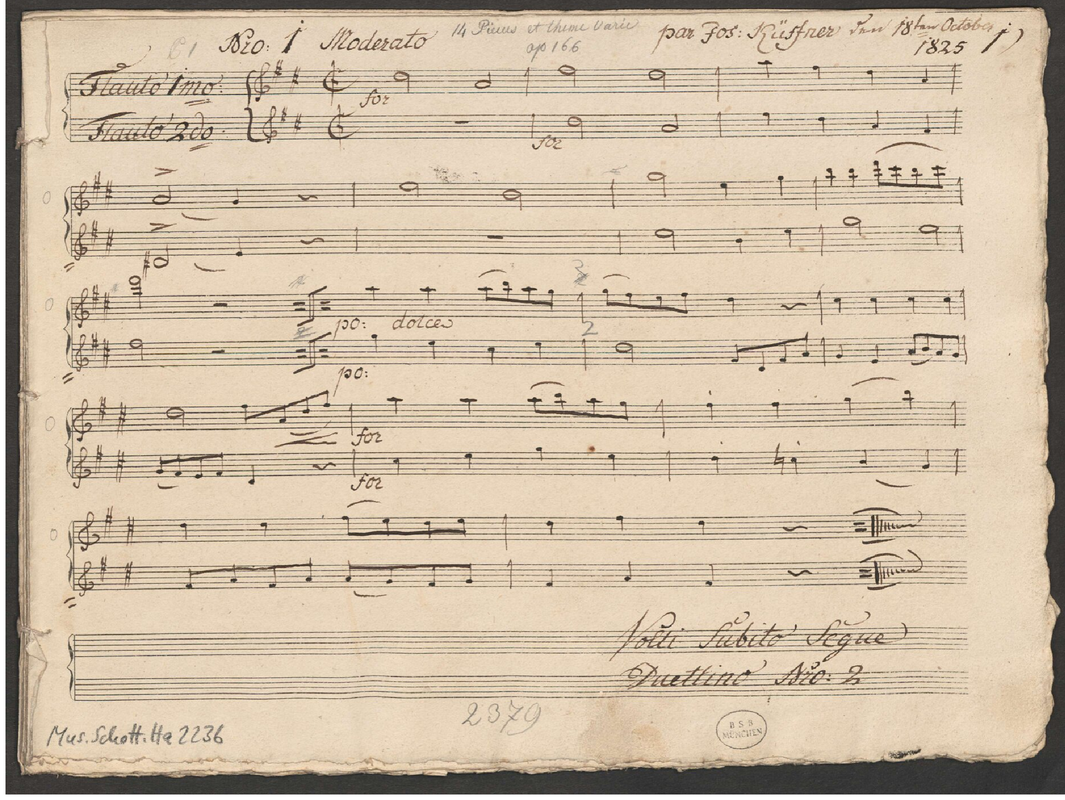 Nro: 1 Moderato 14 Pieces et theme varié par Jos: Küffner den 18ten October 1)
op 166 1825
Flauto 1mo:
for
Flauto 2do:
for
3
po: dolce
2
po:
for
for
Volti Subito Segue
Duettino Nro: 2
2379
Mus. Schott. Ha 2236
B S B
MÜNCHEN